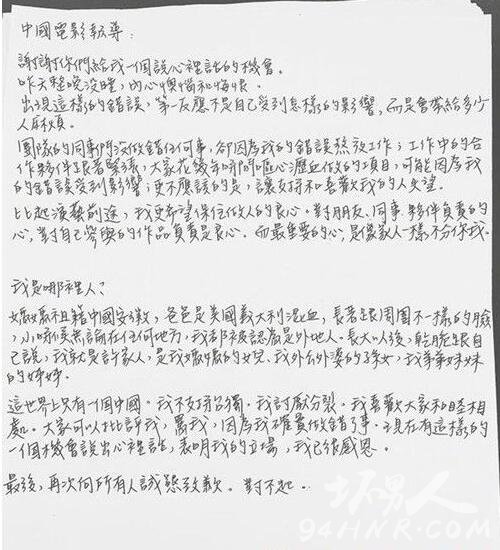 中國電影報導:
謝謝你們給我一個說心裡話的機會。
昨天整晚沒睡,內心懊惱和悔恨。
出現這樣的錯誤,第一反應不是自己受到怎樣的影響,而是會帶給多少
人麻煩。
團隊的同事們沒做錯任何事,卻因為我的錯誤熬夜工作;工作中的合
作夥伴跟著緊張,大家花幾年時間嘔心瀝血做的項目,可能因為我
的錯誤受到影響;更不應該的是,讓支持和喜歡我的人失望。
比起演藝前途,我更希望保住做人的良心。對朋友、同事、夥伴負責的
心,對自己參與的作品負責是良心。而最重要的心,是像家人一樣不分你我。
我是哪裡人?
媽媽祖籍中國安徽,爸爸是美國義大利混血,長著跟周圍不一樣的臉
,小時候無論在任何地方,我都被認為是外地人。長大以後,乾脆跟自
己說,我就是許家人,是我媽媽的女兒、我外公外婆的孫女,我爭爭妹妹
的姊姊。
這世界上只有一個中國。我不支持台獨。我討厭分裂。我喜歡大家和睦相
處。大家可以批評我,罵我,因為我確實做錯了事。現在有這樣的
一個機會說出心裡話,表明我的立場,我已很感恩。
最後,再次向所有人誠懇致歉。對不起。
坏男人
94HNR.COM